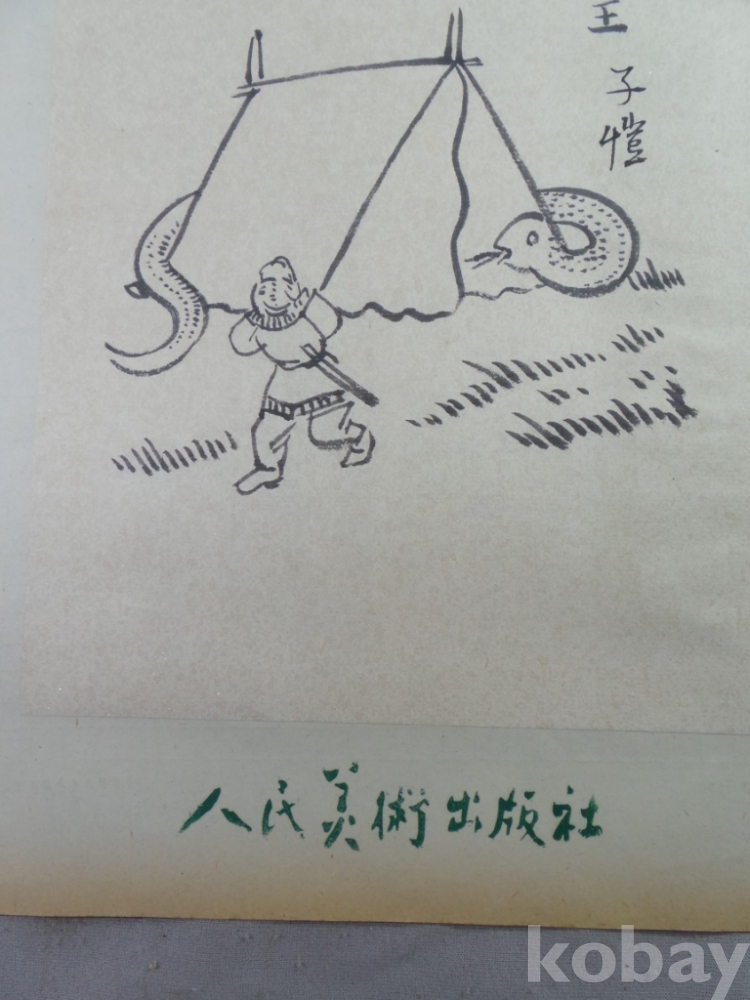 王
子恺
人民美術出版社
kobay